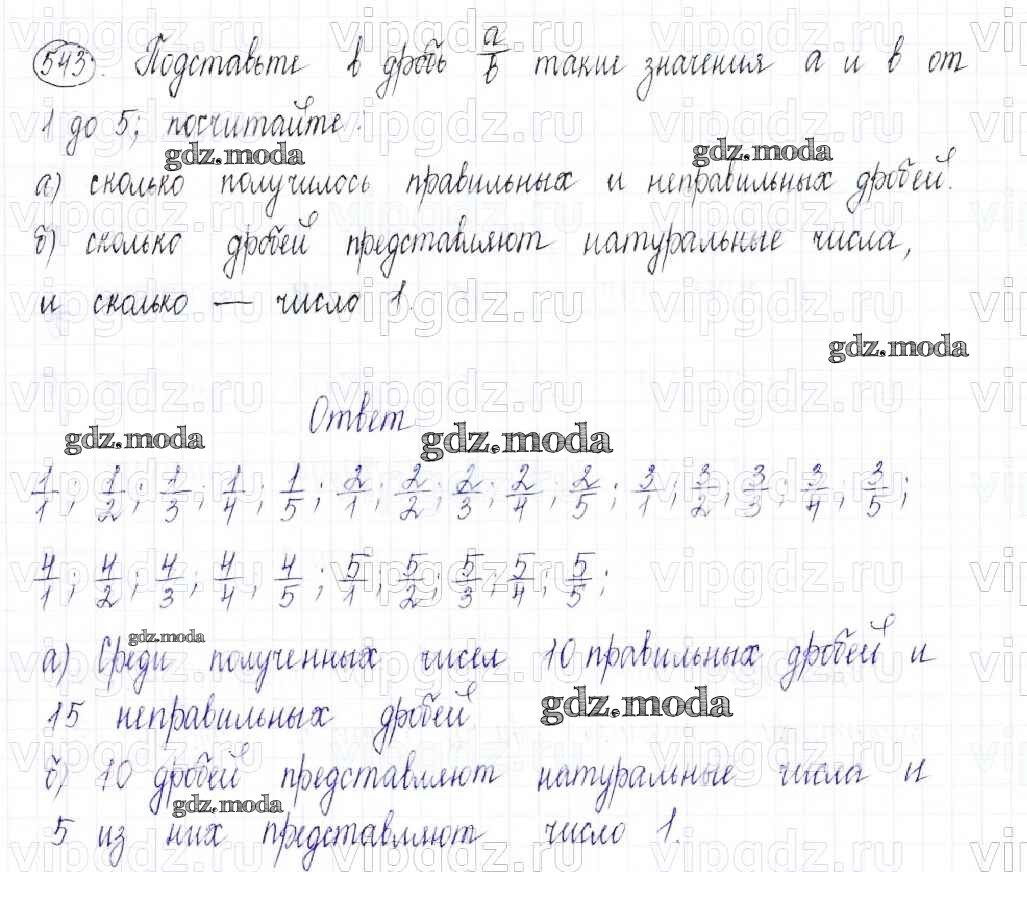 543. Подставьте в дробь a/b такие значения a и b от
1 до 5; посчитайте:
а) сколько получилось правильных и неправильных дробей.
б) сколько дробей представляют натуральные числа,
и сколько — число 1.
Ответ
1/1; 1/2; 1/3; 1/4; 1/5; 2/1; 2/2; 2/3; 2/4; 2/5; 3/1; 3/2; 3/3; 3/4; 3/5;
4/1; 4/2; 4/3; 4/4, 4/5; 5/1; 5/2; 5/3; 5/4; 5/5;
а) Среди полученных чисел 10 правильных дробей и
15 неправильных дробей
б) 10 дробей представляют натуральные числа и
5 из них представляют число 1.
gdz.moda
vipgdz.ru